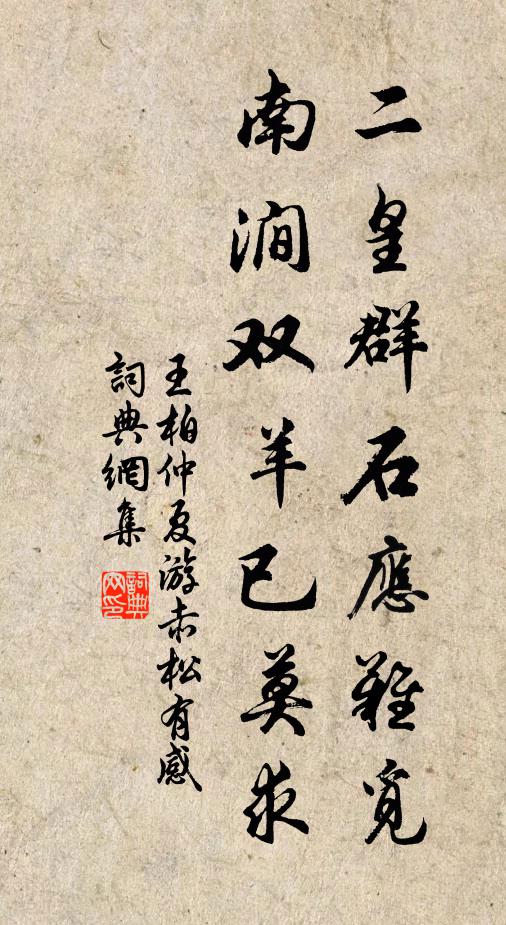 二皇群石應難覓
南澗双羊已莫求
王柏仲夏游赤松有感
詞典網集
詞典网印